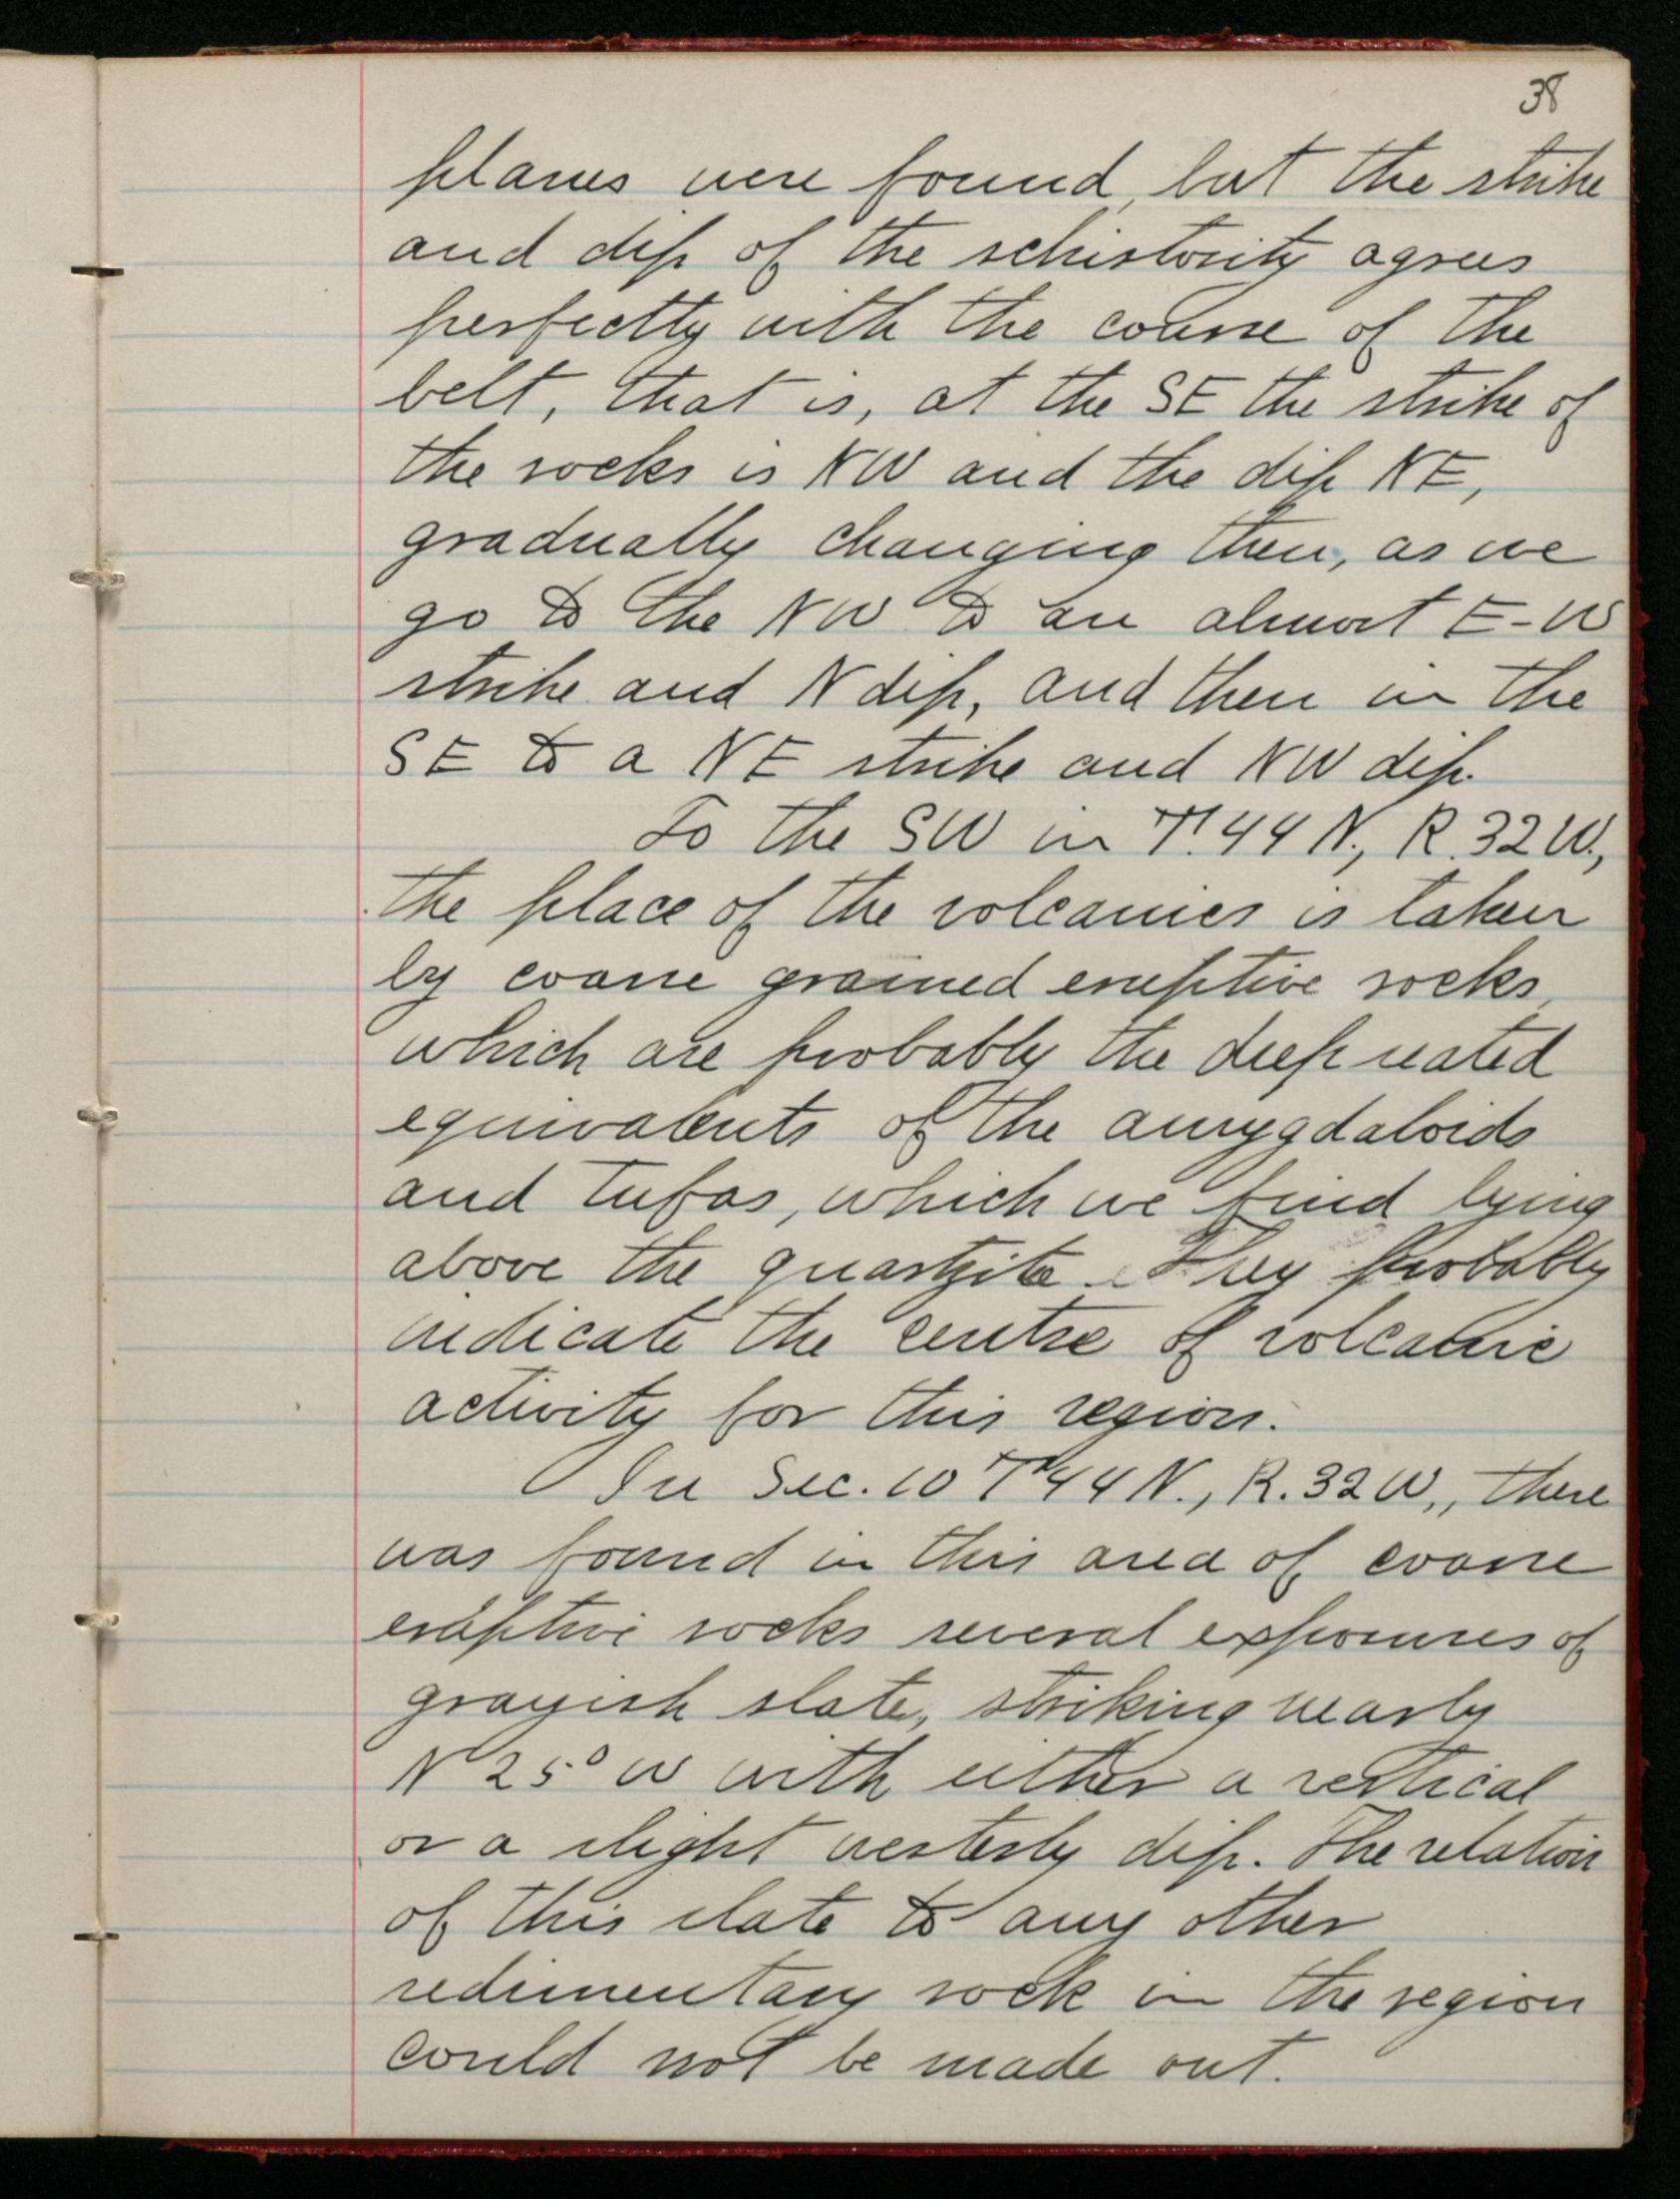 38
planes were found, but the strike
and dip of the schistosity agrees
perfectly with the course of the
belt, that is, at the SE the strike of
the rocks is NW and the dip NE,
gradually changing then, as we
go to the NW to an almost E-W
strike and N dip, and then in the
SE to a NE strike and NW dip.
To the SW in T. 44 N., R. 32 W.,
the place of the volcanics is taken
by coarse grained eruptive rocks,
which are probably the deep seated
equivalents of the amygdaloids
and tufas, which we find lying
above the quartzite. They probably
indicate the centre of volcanic
activity for this region.
In Sec. 10 T 44 N., R. 32 W., there
was found in this area of coarse
eruptive rocks several exposures of
grayish slate, striking nearly
N 25° W with either a vertical
or a slight westerly dip. The relation
of this slate to any other
sedimentary rock in the region
could not be made out.